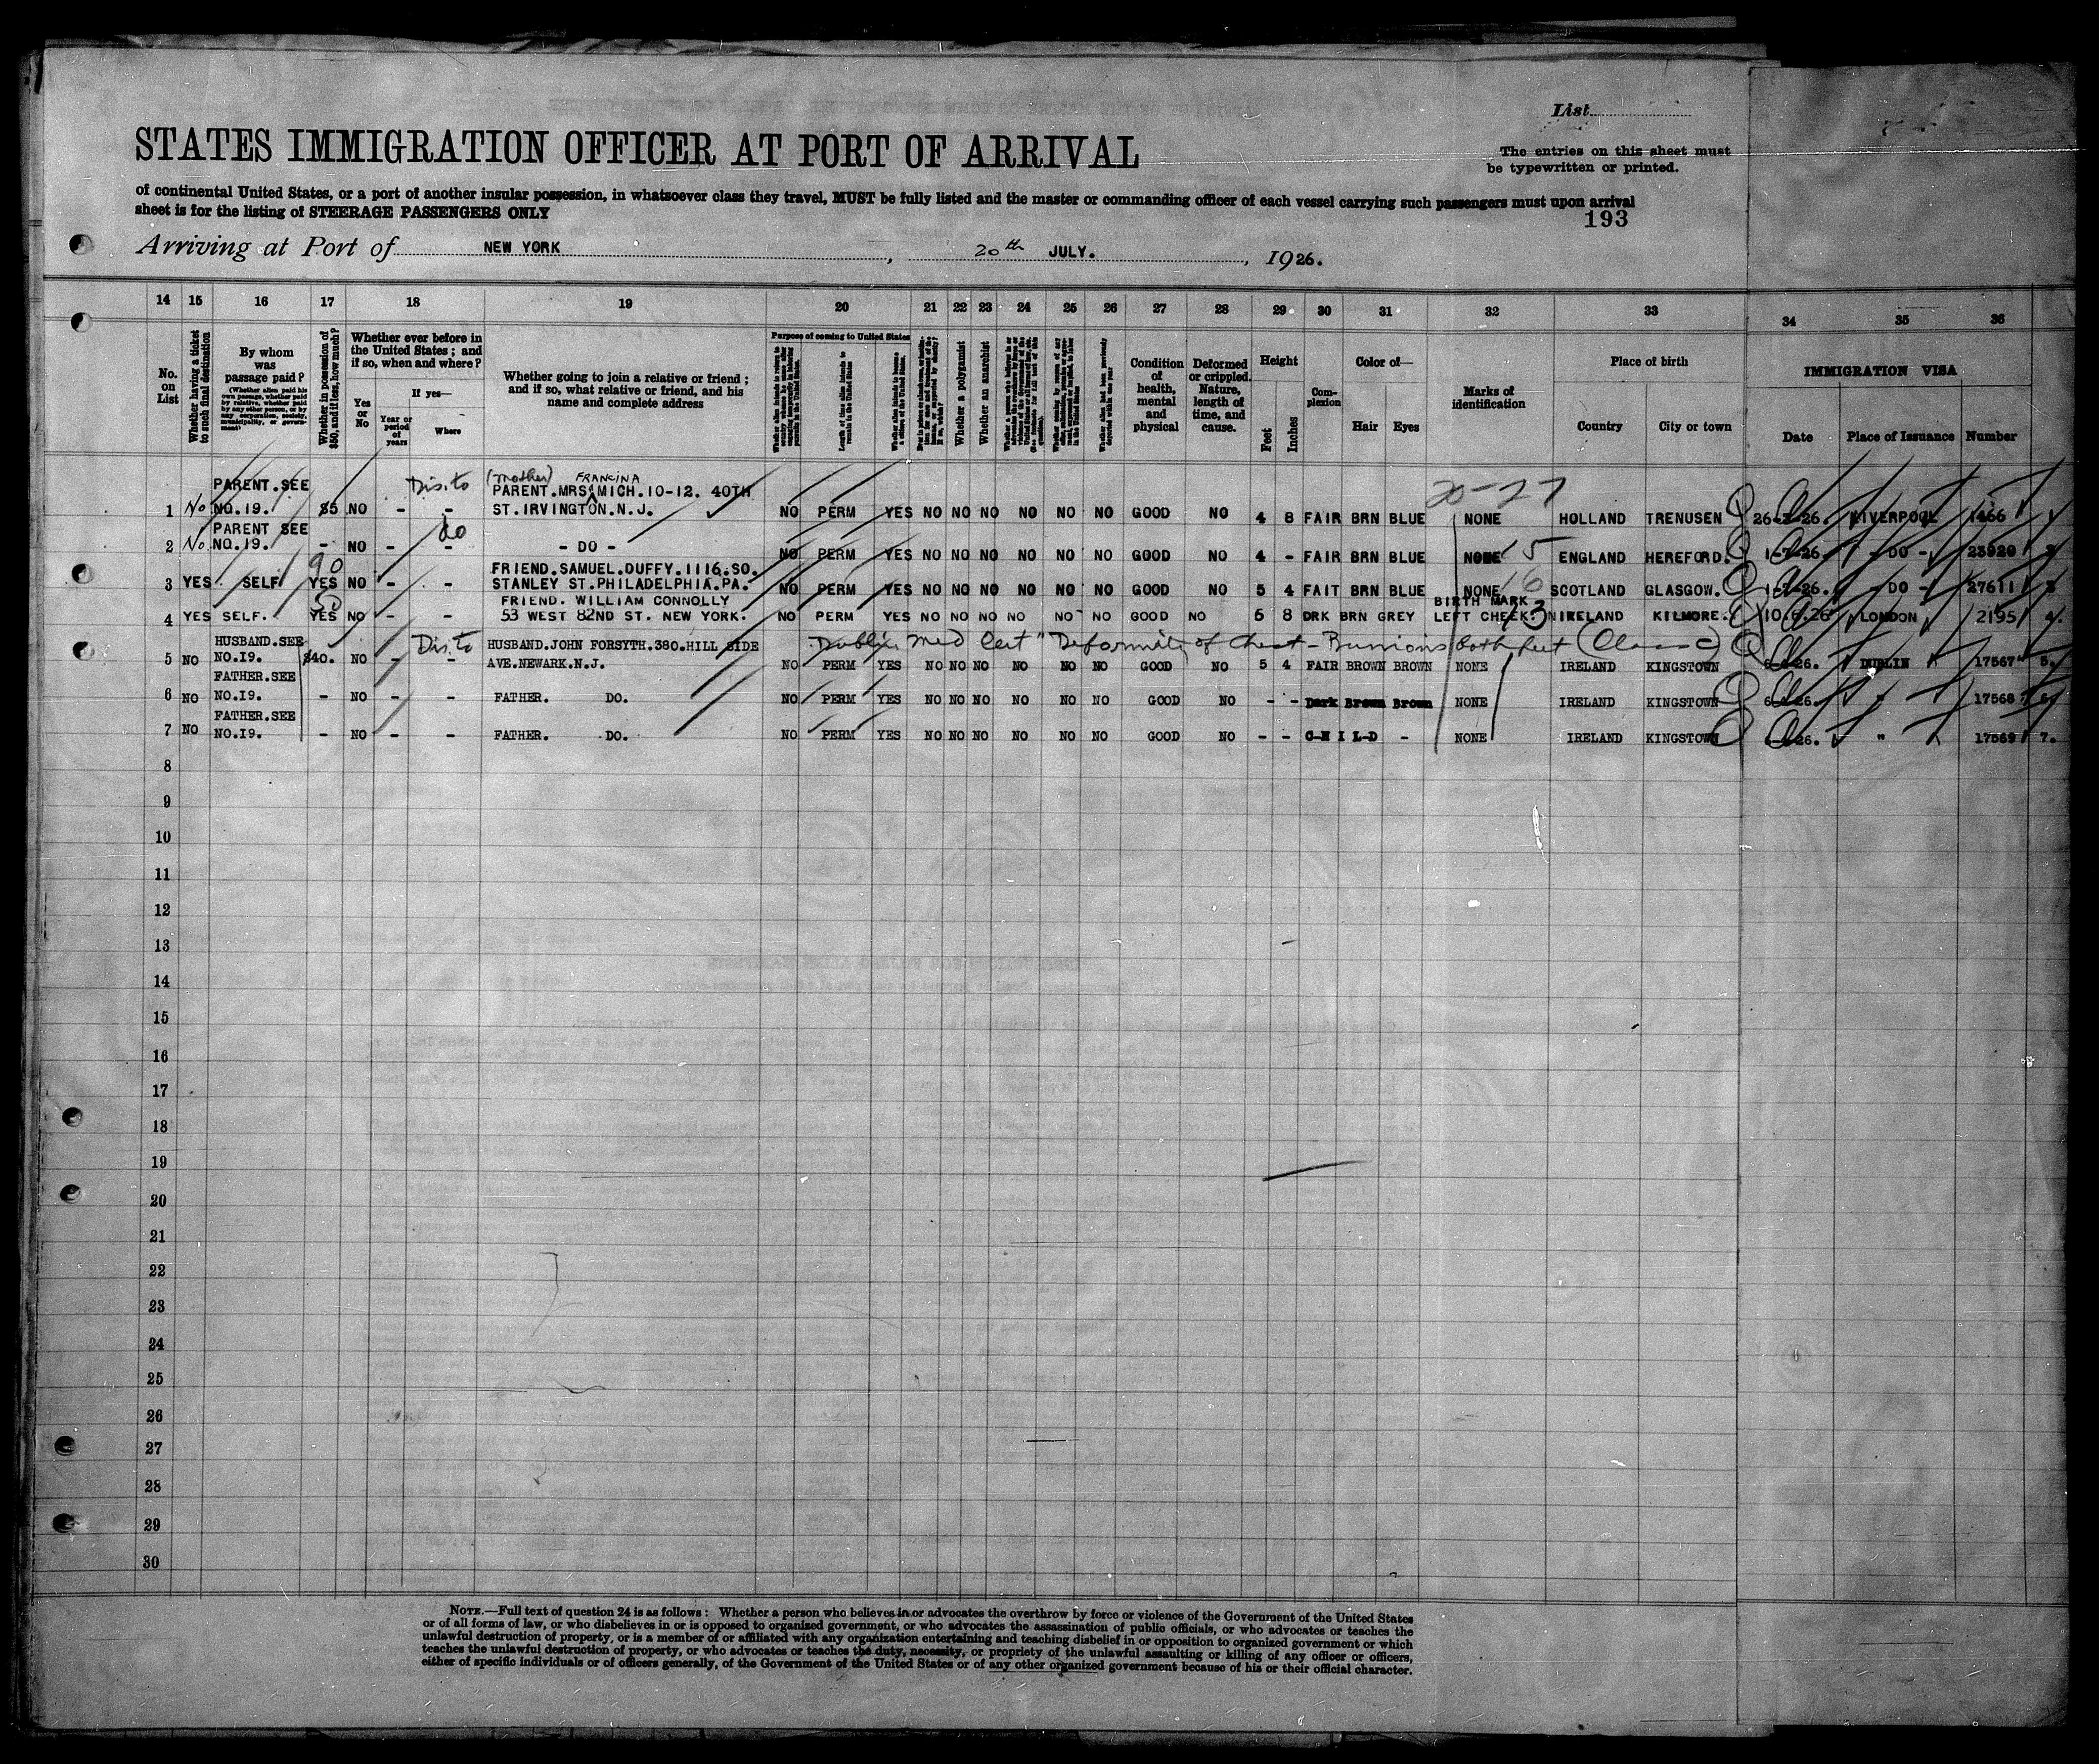 List
STATES IMMIGRATION OFFICER AT PORT OF ARRIVAL
The entries on this sheet must
be typewritten or printed.
of continental United States, or a port of another insular possession, in whatsoever class they travel, MUST be fully listed and the master or commanding officer of each vessel carrying such passengers must upon arrival
sheet is for the listing of STEERAGE PASSENGERS ONLY
193
Arriving at Port of NEW YORK, 20th JULY., 1926.
14 15 16 17 18 19 20 21 22 23 24 25 26 27 28 29 30 31 32 33 34 35 36
No. on List
Whether having a ticket to such final destination
By whom was passage paid?
(Whether alien paid his own passage, whether paid by relative, whether paid by any other person, or by any corporation, society, municipality, or government)
Whether in possession of $50, and if less, how much?
Whether ever before in the United States; and if so, when and where?
Yes or No
If yes—
Year or period of years
Where
Whether going to join a relative or friend; and if so, what relative or friend, and his name and complete address
Purpose of coming to United States
Length of time alien intends to remain in the United States
Whether a polygamist
Whether an anarchist
Condition of health, mental and physical
Deformed or crippled. Nature, length of time, and cause.
Height
Feet
Inches
Complexion
Color of—
Hair
Eyes
Marks of identification
Place of birth
Country
City or town
IMMIGRATION VISA
Date
Place of Issuance
Number
Dis. to (mother) FRANCINA 20-27
PARENT.SEE PARENT.MRS MICH.10-12. 40TH
1 No NO.19. $5 NO - - ST.IRVINGTON.N.J. NO PERM YES NO NO NO NO NO NO GOOD NO 4 8 FAIR BRN BLUE NONE HOLLAND TRENUSEN LIVERPOOL 1466 1
PARENT SEE do
2 No NO.19. - NO - - - DO - NO PERM YES NO NO NO NO NO NO GOOD NO 4 - FAIR BRN BLUE NONE 15 ENGLAND HEREFORD. - DO - 23920 2
90 FRIEND.SAMUEL.DUFFY.1116.SO.
3 YES. SELF YES NO - - STANLEY ST.PHILADELPHIA.PA. NO PERM YES NO NO NO NO NO NO GOOD NO 5 4 FAIT BRN BLUE NONE 16 SCOTLAND GLASGOW. - DO - 27611 3
50 FRIEND. WILLIAM CONNOLLY BIRTH MARK
4 YES SELF. YES NO - - 53 WEST 82ND ST. NEW YORK. NO PERM YES NO NO NO NO NO NO GOOD NO 5 8 DRK BRN GREY LEFT CHEEK. IRELAND KILMORE. LONDON 2195 4.
HUSBAND.SEE Dis. to HUSBAND.JOHN FORSYTH.380.HILL SIDE Dublin Med Cert "Deformity of Chest - Bunions both feet (Class C)
5 NO NO.I9. $40. NO - - AVE.NEWARK.N.J. NO PERM YES NO NO NO NO NO NO GOOD NO 5 4 FAIR BROWN BROWN NONE IRELAND KINGSTOWN DUBLIN 17567 5.
FATHER.SEE
6 NO NO.I9. - NO - - FATHER. DO. NO PERM YES NO NO NO NO NO NO GOOD NO - - Dark Brown Brown NONE IRELAND KINGSTOWN " 17568 6.
FATHER.SEE
7 NO NO.I9. - NO - - FATHER. DO. NO PERM YES NO NO NO NO NO NO GOOD NO - - C H I L D - NONE IRELAND KINGSTOWN " 17569 7.
8
9
10
11
12
13
14
15
16
17
18
19
20
21
22
23
24
25
26
27
28
29
30
NOTE.—Full text of question 24 is as follows: Whether a person who believes in or advocates the overthrow by force or violence of the Government of the United States
or of all forms of law, or who disbelieves in or is opposed to organized government, or who advocates the assassination of public officials, or who advocates or teaches the
unlawful destruction of property, or is a member of or affiliated with any organization entertaining and teaching disbelief in or opposition to organized government or which
teaches the unlawful destruction of property, or who advocates or teaches the duty, necessity, or propriety of the unlawful assaulting or killing of any officer or officers,
either of specific individuals or of officers generally, of the Government of the United States or of any other organized government because of his or their official character.